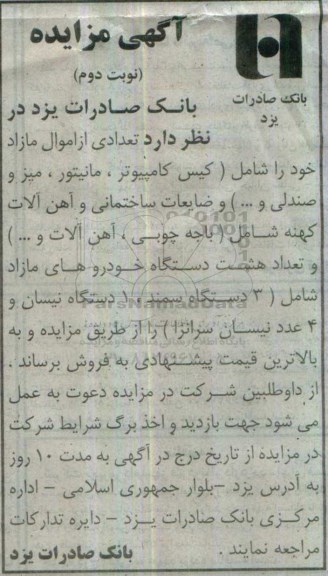 آگهی مزایده
(نوبت دوم)
بانک صادرات
یزد
بانک صادرات یزد در
نظر دارد تعدادی ازاموال مازاد
خود را شامل ( کیس کامپیوتر ، مانیتور ، میز و
صندلی و ... ) و ضایعات ساختمانی و آهن آلات
کهنه شامل ( باجه چوبی ، آهن آلات و ... )
و تعداد هشت دستگاه خودرو های مازاد
شامل ( ۳ دستگاه سمند ، ۱ دستگاه نیسان و
۴ عدد نیسان سرانزا ) را از طریق مزایده و به
بالاترین قیمت پیشنهادی به فروش برساند ،
از داوطلبین شرکت در مزایده دعوت به عمل
می شود جهت بازدید و اخذ برگ شرایط شرکت
در مزایده از تاریخ درج در آگهی به مدت ۱۰ روز
به آدرس یزد –بلوار جمهوری اسلامی – اداره
مرکزی بانک صادرات یزد – دایره تدارکات
مراجعه نمایند .
بانک صادرات یزد